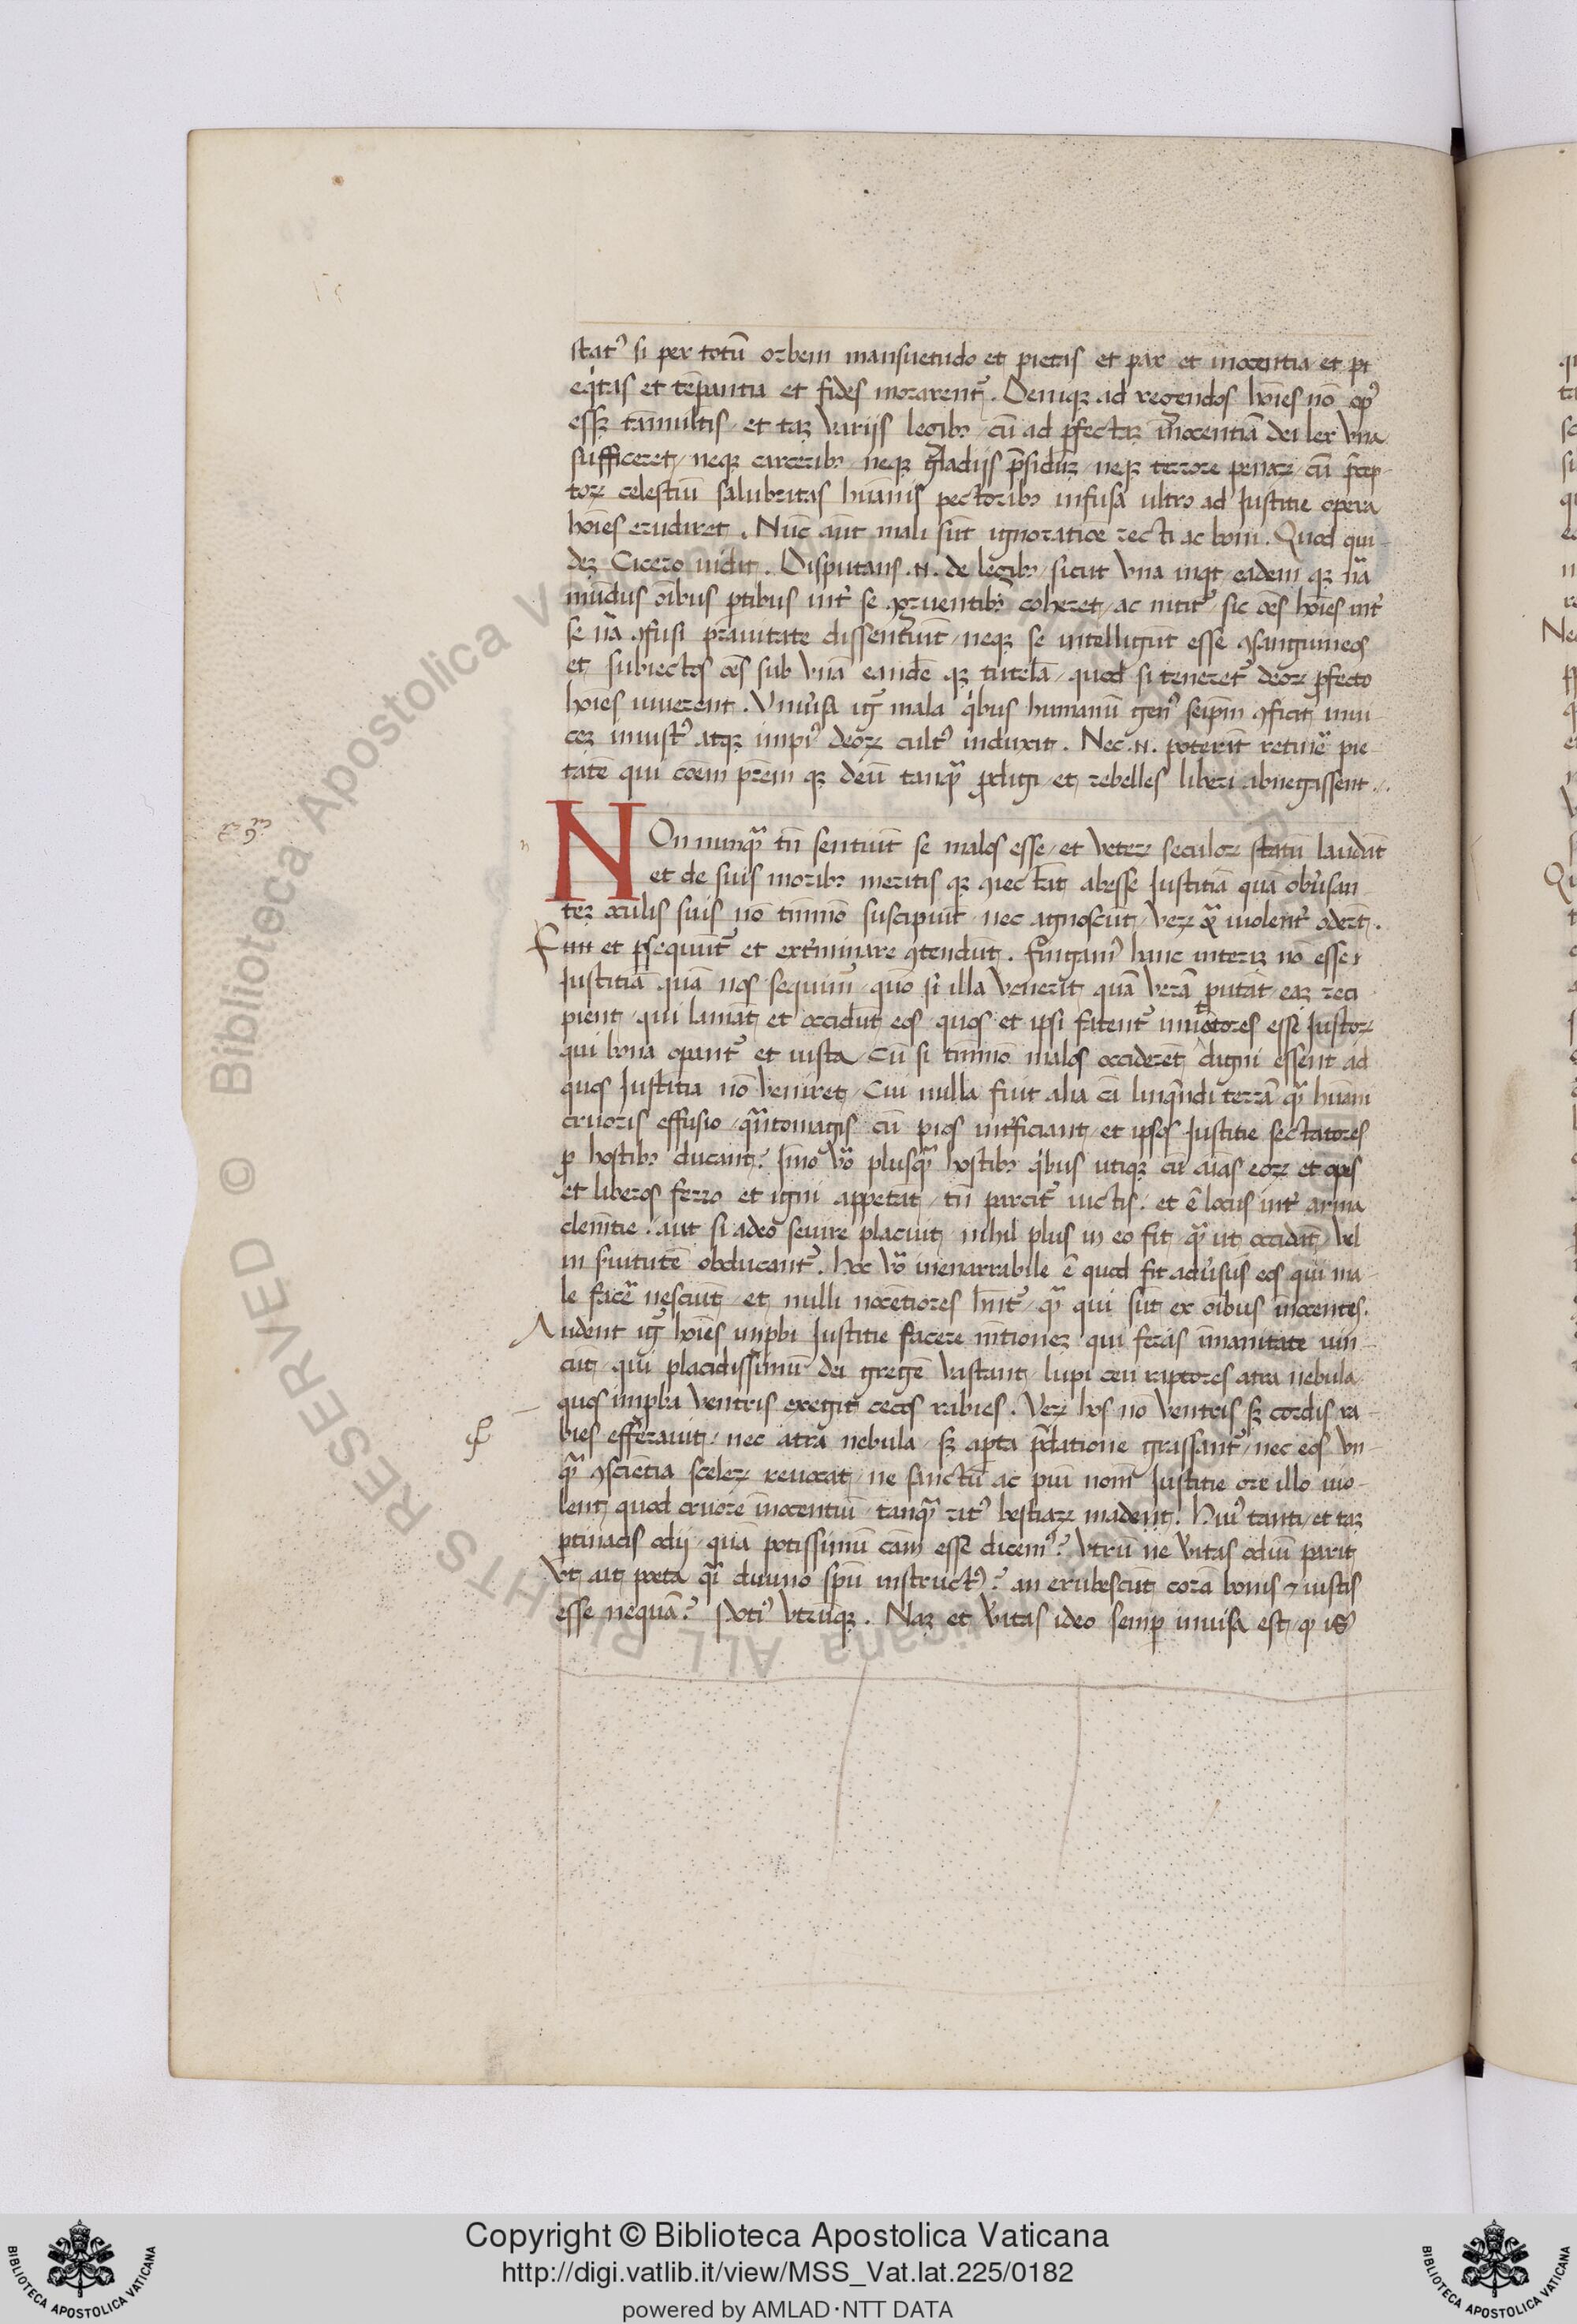 stat᾽ si per totū orbem mansuetudo et pietas et pax et inocentia et
eq̇tas et tēꝑantia et fides morarent᷑. Deniqꝫ ad regendos hoīes nō op᾽
essꝫ tāmultis / et taꝫ varijs legibꝫ / cū ad ꝑfectaꝫ īnocentiā dei lex vna
sufficeret / neqꝫ carceribꝫ neqꝫ gladijs p̄siduꝫ / neqꝫ terrore penaꝝ / cū p̄cep
toꝝ celestiū salubritas hūanis pectoribꝫ infusa ultro ad Justitie opera
hoīes erudiret. Nūc aūt mali sūt ignoratiōe recti ac boni. Quod qui
deꝫ Cicero uidit. Disputans .n. de legibꝫ / sicut vna inqt eadem qꝫ nā
mūdus oībus ꝑtibus int᾽ se ꝯgruentibꝫ coheret / ac nitit᷑ / sic oēs hoīes int᾽
se nā ꝯfusi prauitate dissentiūt / neqꝫ se intelligūt esse ꝯsanguineos
et subiectos oēs sub vnā eandē qꝫ tutelā / quod si teneret᷑ deoꝝ ꝑfecto
hoīes uiuerent. Vniu᾽sa ig᷑ mala q̇bus humanū gen᾽ seip̄m ꝯficit inui
ceꝫ iniust᾽ atqꝫ impi᾽ deoꝝ cult᾽ induxit. Nec .n. poterāt retinē᷑ pie
tatē qui cōem p̄rem qꝫ deū tanqᷓ ꝓdigi / et rebelles liberi abnegassent.
NOn nunqᷓ tn̄ sentiūt se malos esse / et veteꝝ seculoꝝ statū laudāt
et de suis moribꝫ meritis qꝫ ꝯiectāt abesse Justitiā quā obu᾽san
teꝫ oculis suis nō tn̄mō suscipiūt / nec agnoscūt / veꝝ uiolent᾽ oderūt.
et ꝑsequūt᷑ et ext᾽minare ꝯtendūt. Fingam᾽ hanc interiꝫ nō esse
Justitiā quā nos sequim᷑ quō si illa venerit quā verā putāt eaꝫ reci
pient / qui laniāt et occidūt eos quos et ipsi fatent᷑ esse Justoꝝ
qui bona opant᷑ et iusta / Cū si tn̄mō malos occiderēt digni essent ad
quos Justitia nō veniret / Cui nulla fuit alia cā linquēdi terrā qᷓ hūani
cruoris effusio / qᷓntomagis cū pios int᾽ficiant / et ipsos Justitie sectatores
ꝓ hostibꝫ ducant? Imo v᷑o plusqᷓ hostibꝫ q̇bus utiqꝫ cū aīas eoꝝ et opes
et liberos ferro et igni appetāt / tn̄ parcit᷑ uictis / et ē locus int᾽ arma
clemētie / aut si adeo seuire placuit / nihil plus in eo fit / qᷓ ut occidāt / vel
in s᾽uitutē obducant᷑. hoc v᷑o inenarrabile ē quod fit adu᾽sus eos qui ma
le facē᷑ nesciūt / et nulli nocētiores hn̄t᷑ / qᷓ qui sūt ex oībus inocentes.
Audent ig᷑ hoīes inp̄bi Justitie facere mētioneꝫ qui feras īmanitate uin
cūt / qui placidissimū dei gregē vastant / lupi ceu raptores atra nebula
quos inp̄ba ventris exegit cecos rabies. Veꝝ hos nō ventris sꝫ cordis ra
bies efferauit / nec atra nebula / sꝫ aꝑta p̄datione grassant᷑ / nec eos vn
qᷓ ꝯsciētia sceleꝝ reuocat / ne sanctū ac piū nom̄ Justitie ore illo uio
lent quod cruore īnocentiū tanqᷓ rit᾽ bestiaꝝ madent. hui᾽ tanti / et taꝫ
ꝑtinacis odij quā potissimū cām esse dicem᾽? Vtrū ne v᾽itas odiū parit
vt ait poeta qᷓi diuino spū instruct᾽? an erubescūt corā bonis ⁊ iustis
esse nequā? Poti᾽ vtrūqꝫ. Naꝫ et v᾽itas ideo semꝑ inuisa est / ꝙ is
© Biblioteca Apostolica Vaticana ALL RIGHTS RESERVED
Copyright © Biblioteca Apostolica Vaticana
http://digi.vatlib.it/view/MSS_Vat.lat.225/0182
powered by AMLAD·NTT DATA
BIBLIOTECA APOSTOLICA VATICANA
BIBLIOTECA APOSTOLICA VATICANA